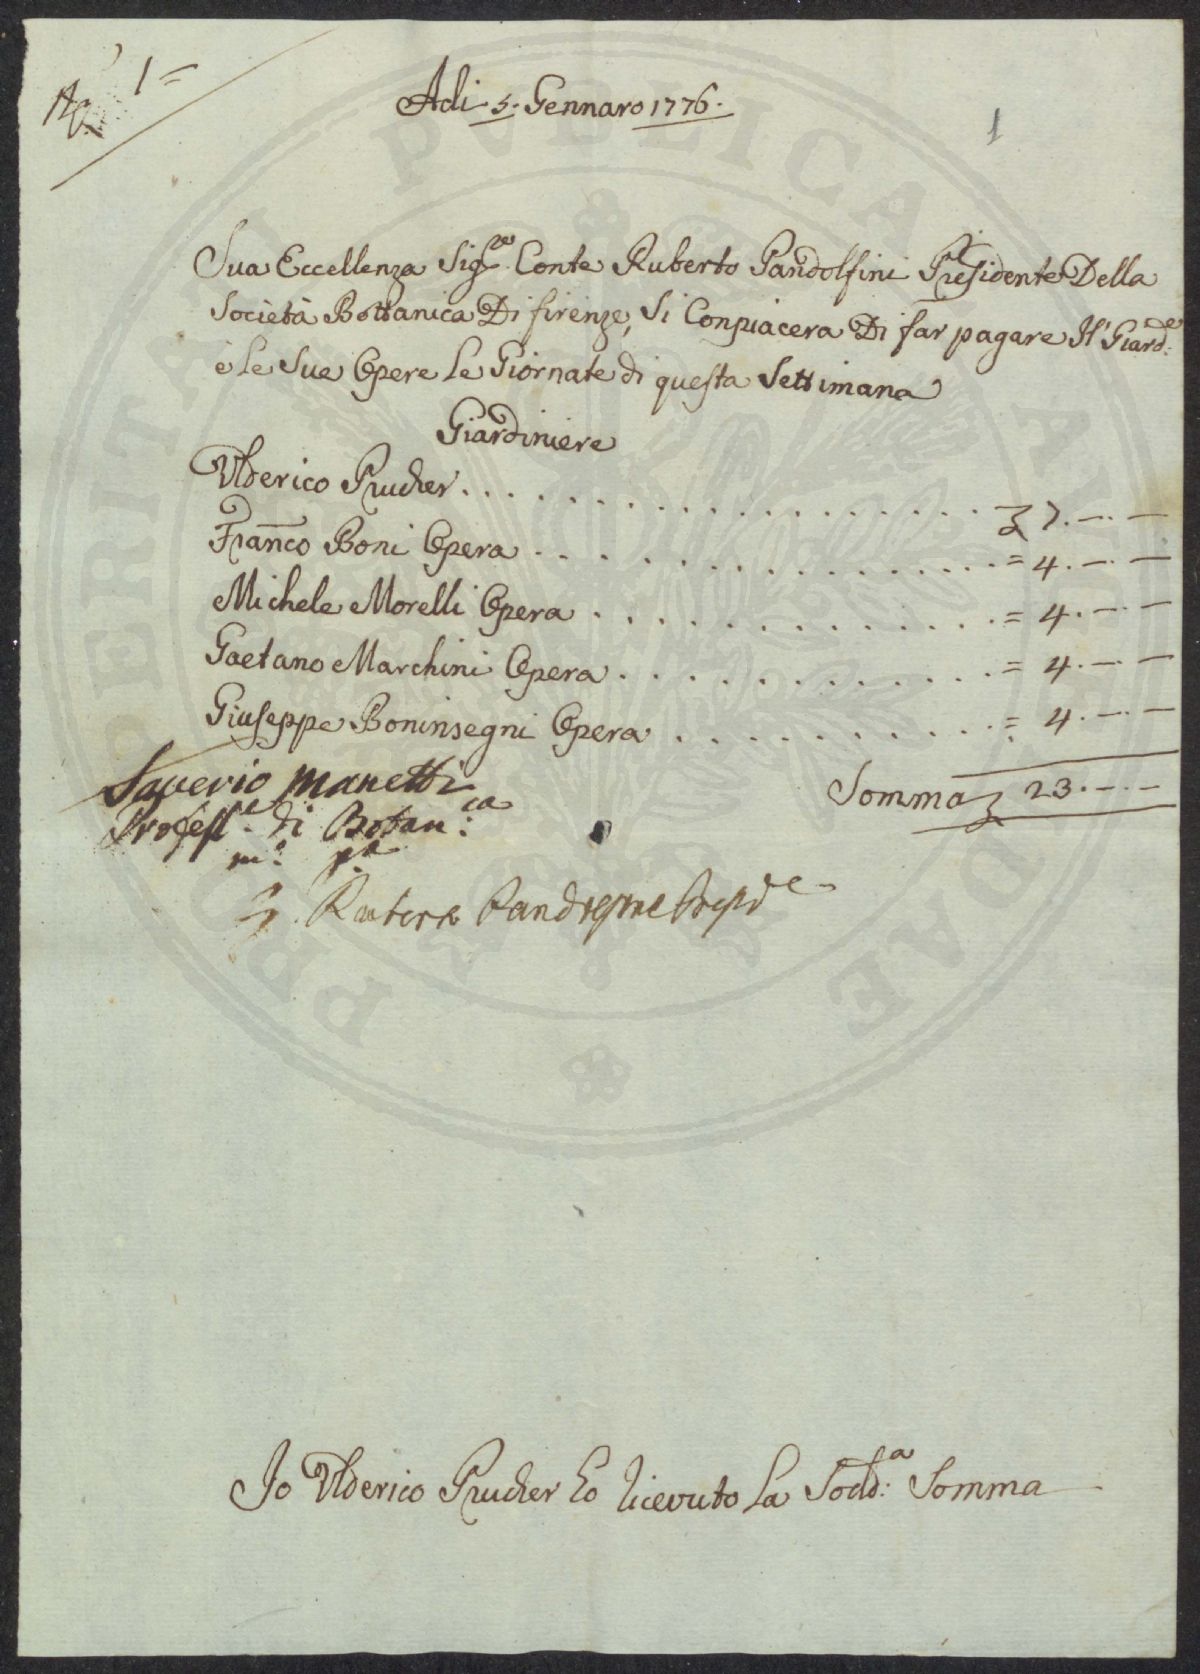 No. 1=
Adi 5. Gennaro 1776.
1
Sua Eccellenza Sig.re Conte Ruberto Pandolfini Presidente Della
Società Bottanica Di firenze, Si Conpiacera Di far pagare Il Giard:re
è le Sue Opere le Giornate di questa Settimana
Giardiniere
Ulderico Prucker . . . . . . . . . . . . . . . . . . 7.—.—
Franco Boni Opera . . . . . . . . . . . . . . . = 4.—.—
Michele Morelli Opera . . . . . . . . . . . . . = 4.—.—
Gaetano Marchini Opera . . . . . . . . . . . . = 4.—.—
Giuseppe Boninsegni Opera . . . . . . . . . . = 4.—.—
Somma 23.—.—
Saverio Manetti
Profess.e di Botan:ca
m:o p.a
Io Ulderico Prucker ho ricevuto La Sodd:a Somma
PROPERITATI PUBLICAE AUGENDAE